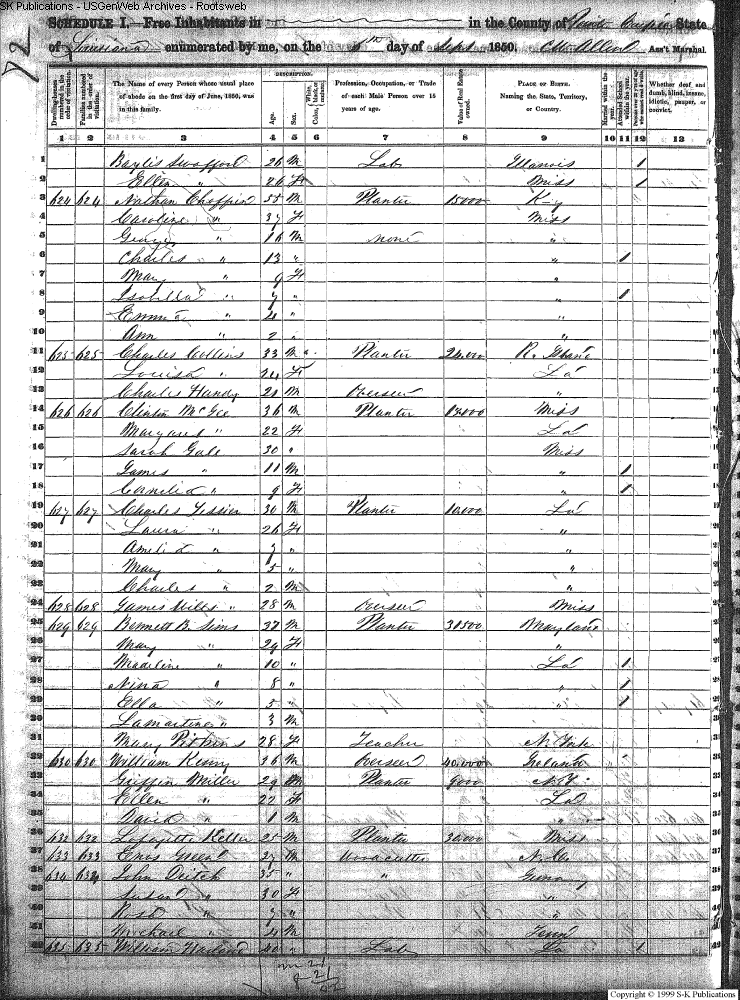 SK Publications - USGenWeb Archives - Rootsweb
72
SCHEDULE I.—Free Inhabitants in in the County of State
of Louisiana enumerated by me, on the 5th day of Sept 1850. Ass't Marshal.
Dwelling-houses numbered in the order of visitation.
Families numbered in the order of visitation.
The Name of every Person whose usual place of abode on the first day of June, 1850, was in this family.
DESCRIPTION.
Age.
Sex.
Color, White, black, or mulatto.
Profession, Occupation, or Trade of each Male Person over 15 years of age.
Value of Real Estate owned.
PLACE OF BIRTH. Naming the State, Territory, or Country.
Married within the year.
Attended School within the year.
Whether deaf and dumb, blind, insane, idiotic, pauper, or convict.
1 2 3 4 5 6 7 8 9 10 11 12 13
1 Baylis Swafford 26 M Lab Illanois 1
2 Ellen " 26 F Miss 1
3 624 624 Nathan Choppin 55 M Planter 15000 K-y
4 Caroline " 37 F Miss
5 George " 16 M none "
6 Charles " 13 " " 1
7 Mary " 9 F "
8 Isabella " 7 " " 1
9 Emma " 4 " "
10 Ann " 2 " "
11 625 625 Charles Collins 33 M Planter 24,000 R. Iland
12 Louisa " 24 F La
13 Charles Handy 21 M Overseer "
14 626 626 Clinton McGee 36 M Planter Miss
15 Margaret " 22 F La
16 Sarah Gale 30 " Miss
17 James " 11 M " 1
18 Cornelia " 9 F " 1
19 627 627 Charles Tessier 30 M Planter 10,000 La
20 Laura " 26 F "
21 Amelia " 7 " "
22 Mary " 5 " "
23 Charles " 2 M "
24 628 628 James Mills " 28 M Overseer Miss
25 629 629 Bennett B. Sims 37 M Planter 31500 Maryland
26 Mary " 29 F "
27 Madeline " 10 " La 1
28 Nina " 8 " " 1
29 Ella " 5 " " 1
30 Lamartine " 3 M
31 Mary Pitkins 28 F Teacher N. York
32 630 630 William Kenny 36 M Overseer 40,000 Ireland
33 Griffin Miller 29 M Planter 9000 N.Y.
34 Ellen " 22 F La
35 David " 1 M "
36 632 632 Lafayette Keller 25 M Planter 30,000 Miss
37 633 633 Enos Green 27 M Woodcutter
38 634 634 John Deitch 35 " "
39 Susan " 30 F "
40 " 7 " "
41 Michael " 4 M Tenn
42 635 635 William 40 " Lab La 1
m 21
21
42
Copyright © 1999 S-K Publications